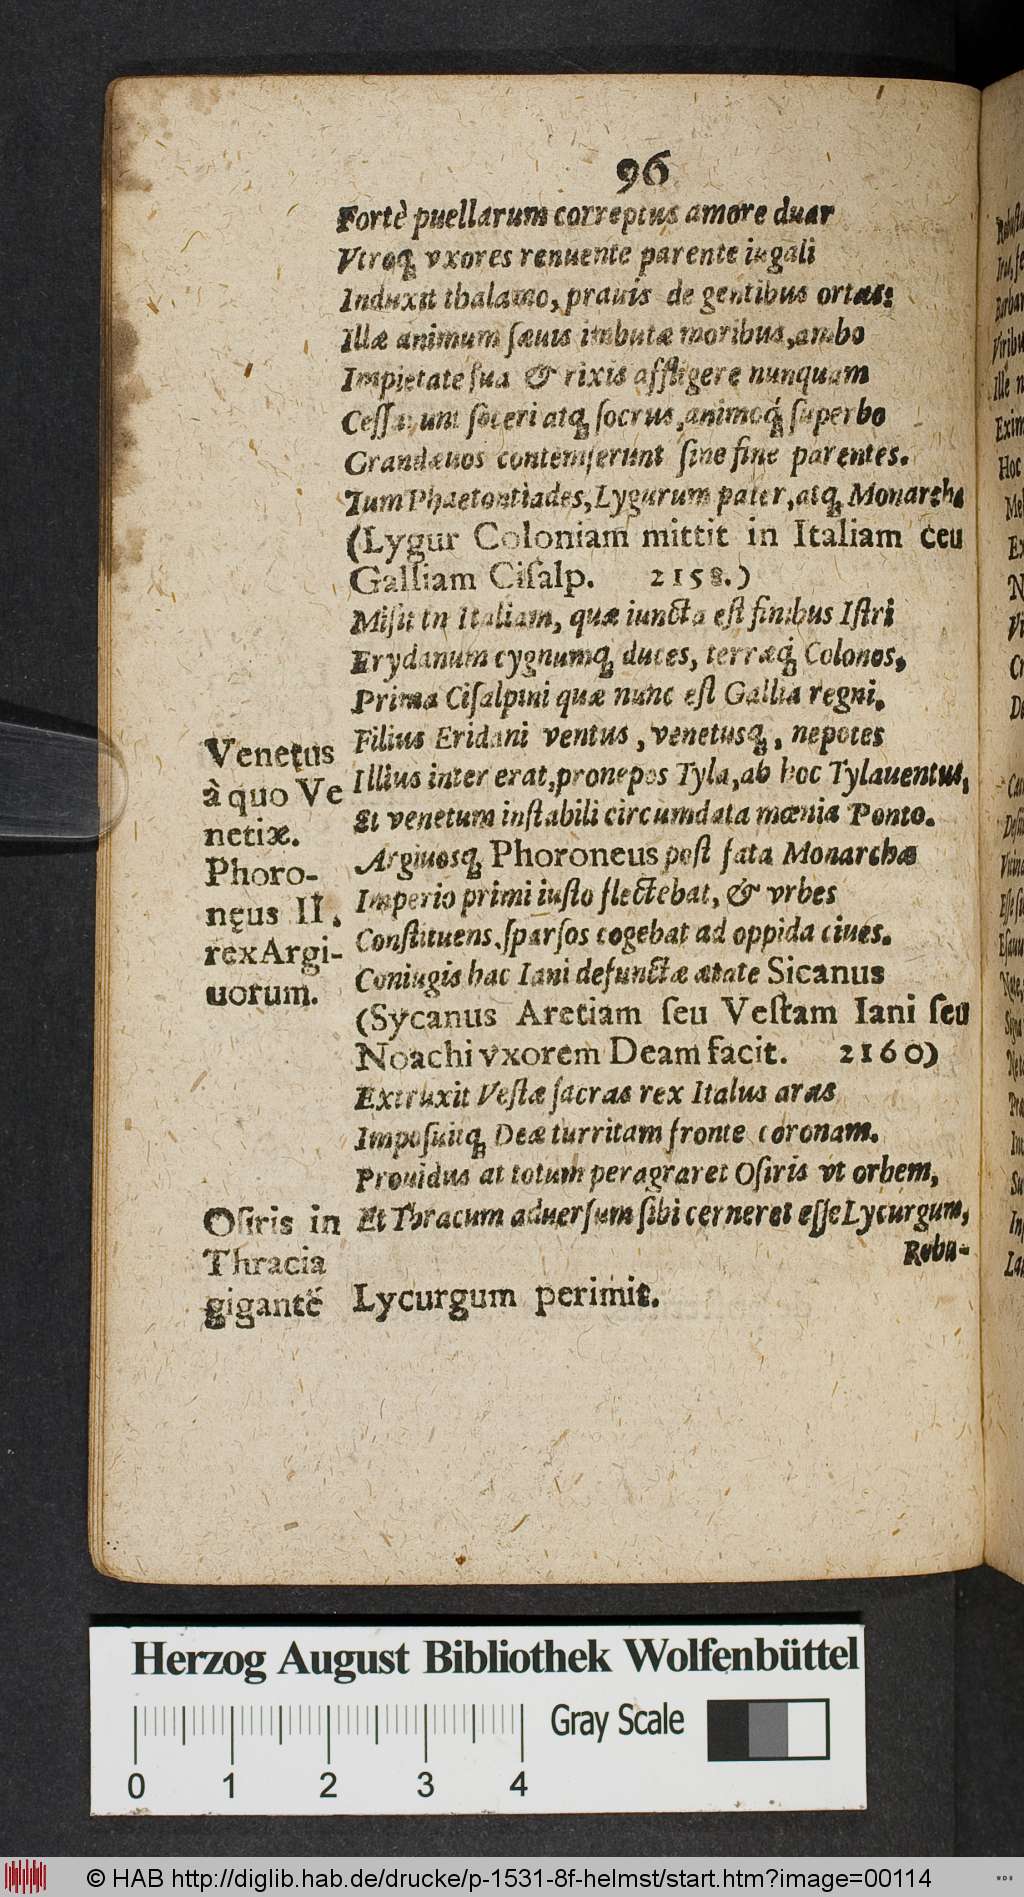 96
Fortè puellarum correptus amore duar
Vtroq́; vxores renuente parente iugali
Induxit thalamo, prauis de gentibus ortas:
Illæ animum ſæuis imbutæ moribus, ambo
Impietate ſua & rixis affligere nunquam
Ceſſarunt ſoceri atq; ſocrus, animoq́; ſuperbo
Grandæuos contemſerunt ſine fine parentes.
Tum Phaetontiades, Lygurum pater, atq; Monarcha
(Lygur Coloniam mittit in Italiam ceu
Galliam Ciſalp. 2158.)
Miſit in Italiam, quæ iuncta eſt finibus Iſtri
Erydanum cygnumq; duces, terræq́; Colonos,
Prima Ciſalpini quæ nunc eſt Gallia regni.
Filius Eridani ventus, venetusq;, nepotes
Illius inter erat, pronepos Tyla, ab hoc Tylauentus,
Et venetum inſtabili circumdata mœnia Ponto.
Argiuosq; Phoroneus poſt fata Monarchæ
Imperio primi iuſto flectebat, & vrbes
Conſtituens, ſparſos cogebat ad oppida ciues.
Coniugis hac Iani defunctæ ætate Sicanus
(Sycanus Aretiam ſeu Veſtam Iani ſeu
Noachi vxorem Deam facit. 2160)
Extruxit Veſtæ ſacras rex Italus aras
Impoſuitq; Deæ turritam fronte coronam.
Prouidus at totum peragraret Oſiris vt orbem,
Et Thracum aduerſum ſibi cerneret eſſe Lycurgum,
Robu-
Venetus
à quo Ve
netiæ.
Phoro-
nęus II.
rex Argi-
uorum.
Oſiris in
Thracia
gigantē Lycurgum perimit.
Herzog August Bibliothek Wolfenbüttel
Gray Scale
0 1 2 3 4
© HAB http://diglib.hab.de/drucke/p-1531-8f-helmst/start.htm?image=00114